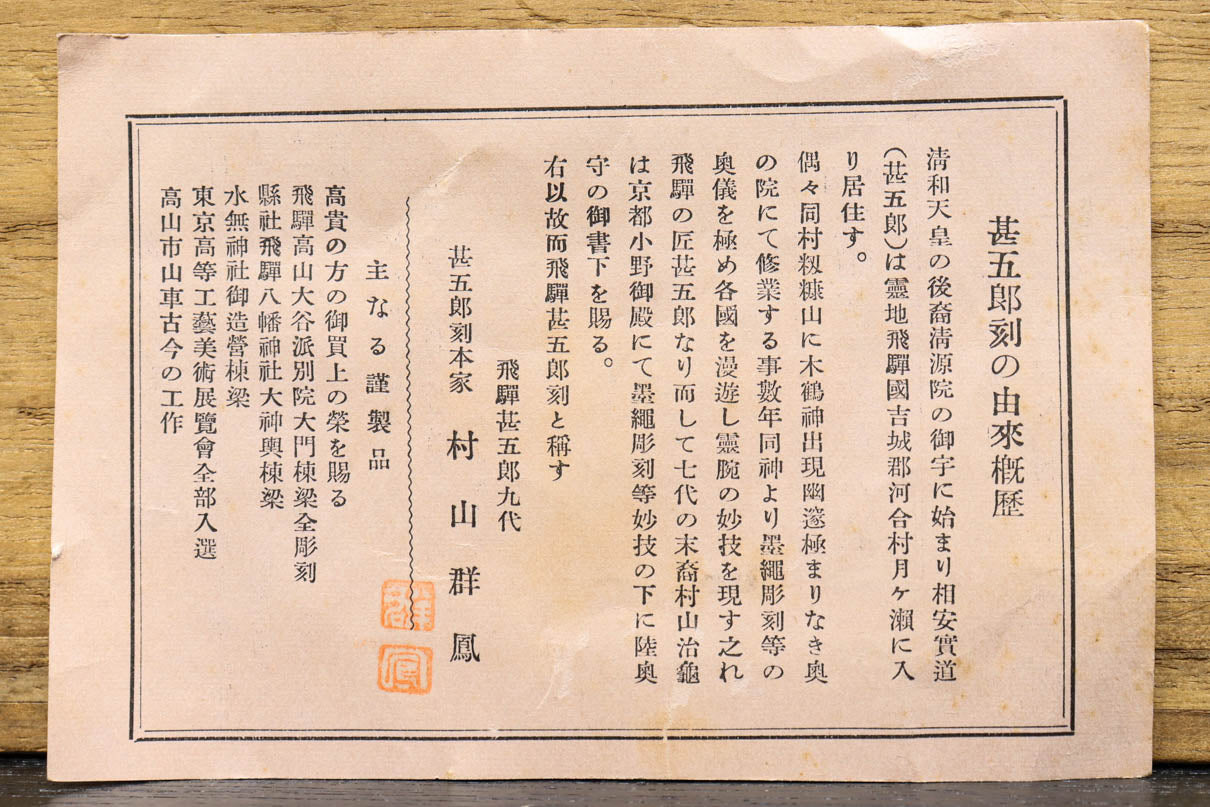 甚五郎刻の由來概歷
淸和天皇の後裔淸源院の御宇に始まり相安實道
(甚五郎)は靈地飛驒國吉城郡河合村月ヶ瀨に入
り居住す。
偶々同村籾糠山に木鶴神出現幽邃極まりなき奥
の院にて修業する事數年同神より墨繩彫刻等の
奥儀を極め各國を漫遊し靈腕の妙技を現す之れ
飛驒の匠甚五郎なり而して七代の末裔村山治龜
は京都小野御殿にて墨繩彫刻等妙技の下に陸奥
守の御書下を賜る。
右以故而飛驒甚五郎刻と稱す
飛驒甚五郎九代
甚五郎刻本家 村山群鳳
主なる謹製品
高貴の方の御買上の榮を賜る
飛驒高山大谷派別院大門棟梁全彫刻
縣社飛驒八幡神社大神輿棟梁
水無神社御造營棟梁
東京高等工藝美術展覽會全部入選
高山市山車古今の工作